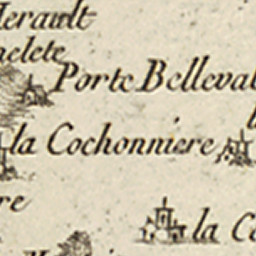 Herault
nelete
Porte Belleval
la Cochonniere
re
la Co